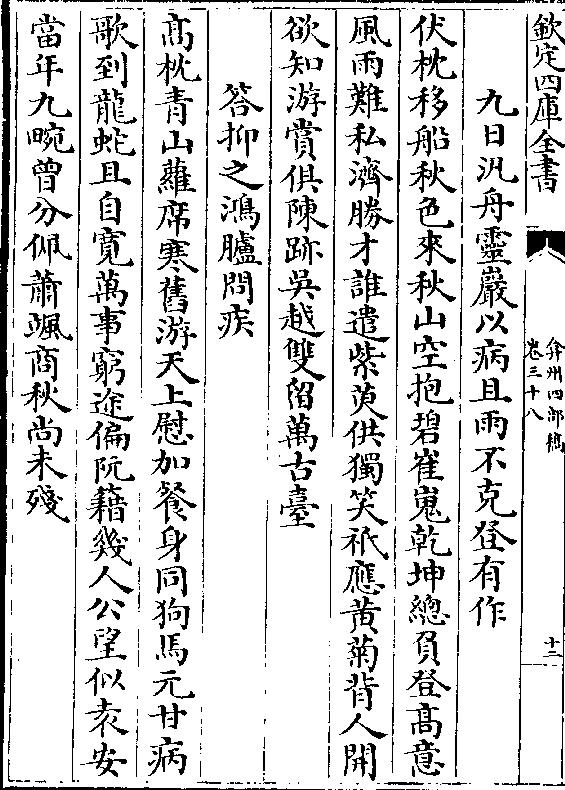 欽定四庫全書
弇州四部稿
卷三十八
十二
九日汎舟靈巖以病且雨不克登有作
伏枕移船秋色來秋山空抱碧崔嵬乾坤總負登高意
風雨難私濟勝才誰遣紫萸供獨笑祇應黄菊背人開
欲知游賞俱陳跡吳越雙留萬古臺
答抑之鴻臚問疾
高枕青山蘿席寒舊游天上慰加餐身同狗馬元甘病
歌到龍蛇且自寛萬事窮途偏阮籍幾人公望似袁安
當年九畹曾分佩蕭颯商秋尚未殘